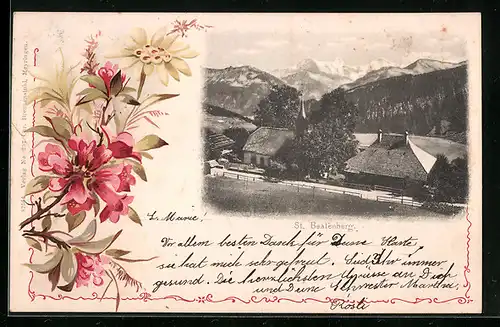 St. Beatenberg.
L. Marie!
Vor allem besten Dank für Deine Karte,
sie hat mich sehr gefreut. Seid Ihr immer
gesund. Die herzlichsten Grüsse an Dich
und Deine Schwester
Rösli